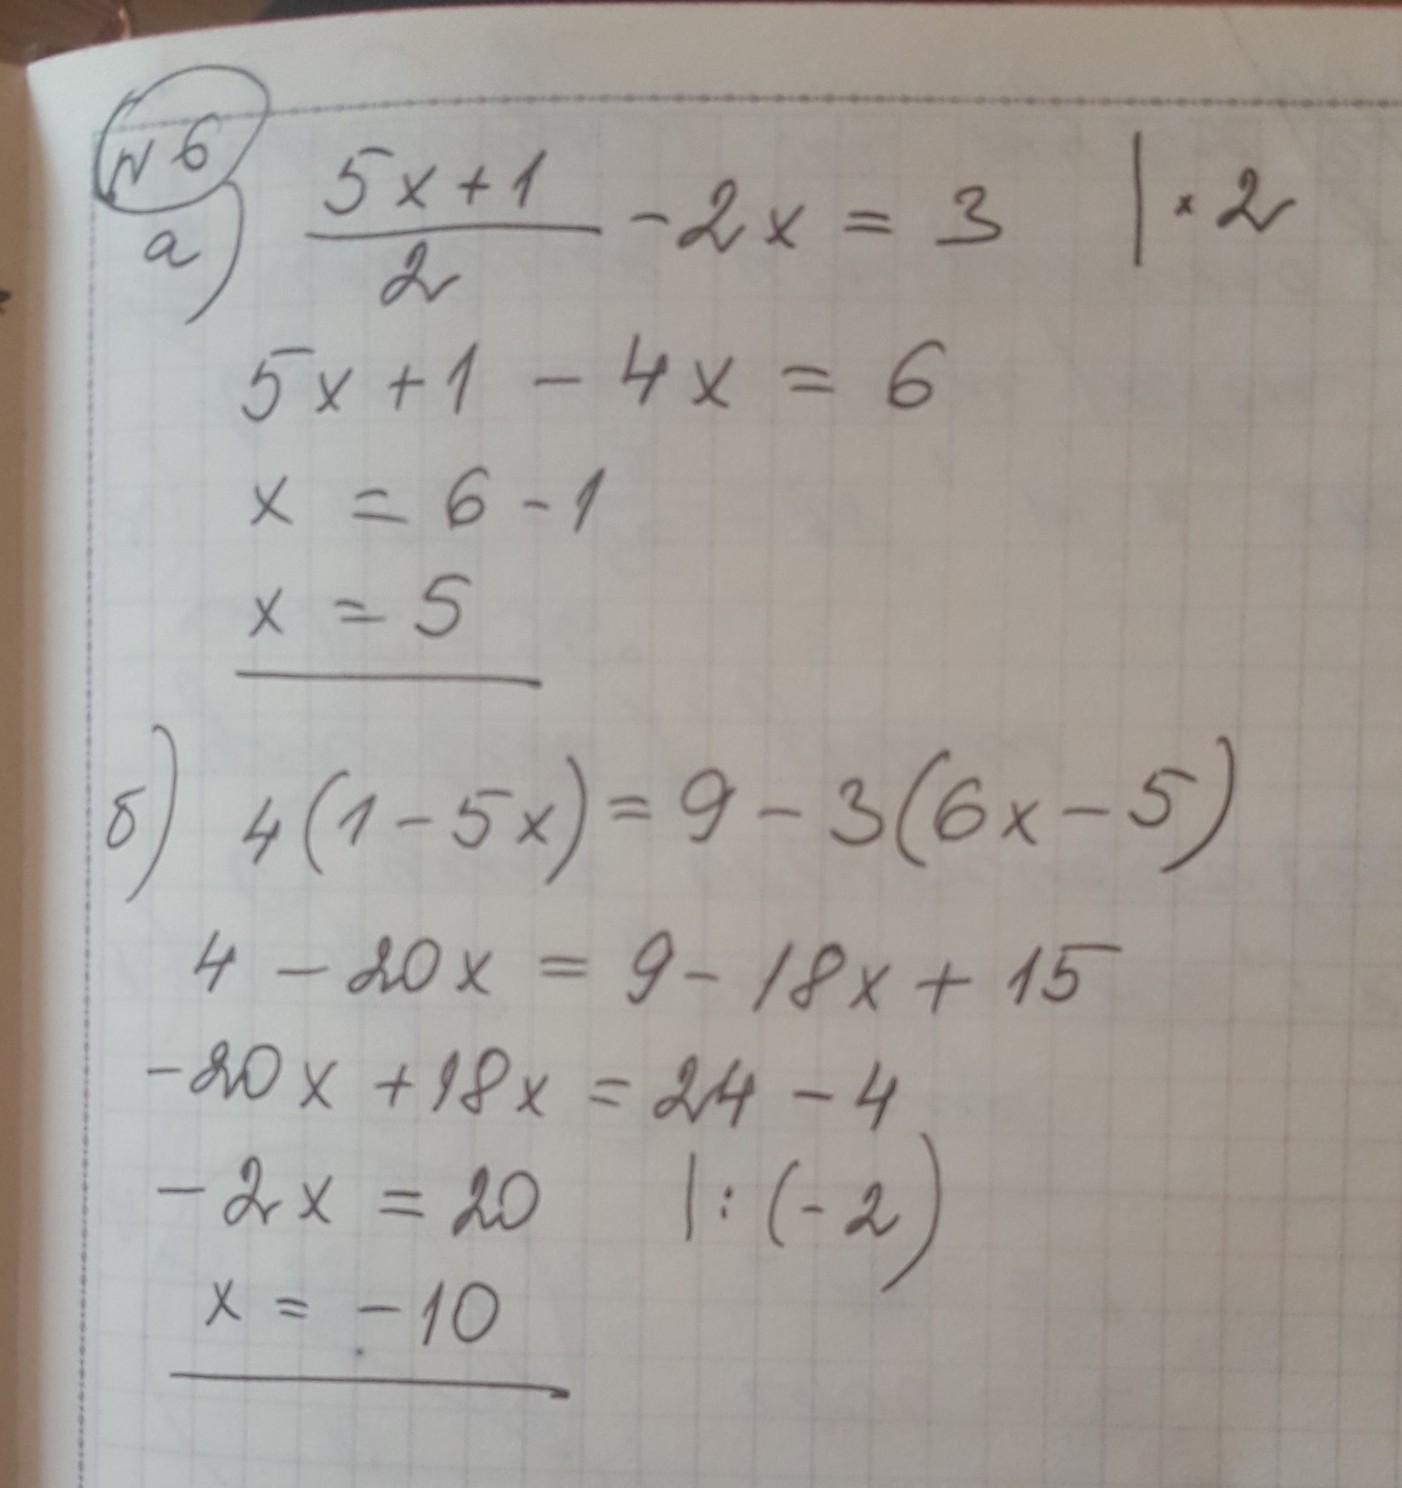 №6
а) (5x+1)/2 - 2x = 3 | × 2
5x + 1 - 4x = 6
x = 6 - 1
x = 5
б) 4(1 - 5x) = 9 - 3(6x - 5)
4 - 20x = 9 - 18x + 15
-20x + 18x = 24 - 4
-2x = 20 | : (-2)
x = -10